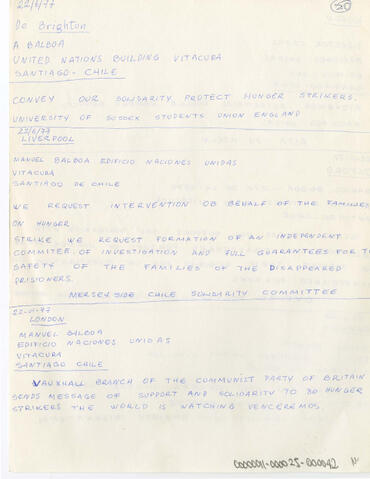 22/6/77
20
De Brighton
A BALBOA
UNITED NATIONS BUILDING VITACURA
SANTIAGO - CHILE
CONVEY OUR SOLIDARITY PROTECT HUNGER STRIKERS.
UNIVERSITY OF SUSSEX STUDENTS UNION ENGLAND
22/6/77
LIVERPOOL
MANUEL BALBOA EDIFICIO NACIONES UNIDAS
VITACURA
SANTIAGO DE CHILE
WE REQUEST INTERVENTION OB BEHALF OF THE FAMILIES
ON HUNGER
STRIKE WE REQUEST FORMATION OF AN INDEPENDENT
COMMITEE OF INVESTIGATION AND FULL GUARANTEES FOR T
SAFETY OF THE FAMILIES OF THE DISAPPEARED
PRISIONERS.
MERSEYSIDE CHILE SOLIDARITY COMMITTEE
LONDON
MANUEL BALBOA
EDIFICIO NACIONES UNIDAS
VITACURA
SANTIAGO CHILE
VAUXHALL BRANCH OF THE COMMUNIST PARTY OF BRITAIN
SENDS MESSAGE OF SUPPORT AND SOLIDARITY TO 80 HUNGER
STRIKERS THE WORLD IS WATCHING VENCEREMOS
0000011-000025-000042